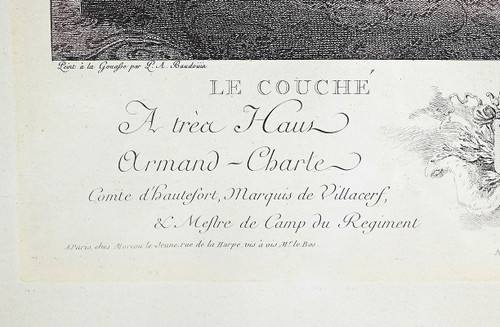 Peint à la Gouasse par P. A. Baudouin
LE COUCHÉ
A très Haut
Armand-Charle
Comte d'hautefort, Marquis de Villacerf,
& Mestre de Camp du Regiment
A Paris, chez Moreau le Jeune, rue de la Harpe, vis à vis Mr. le Bas